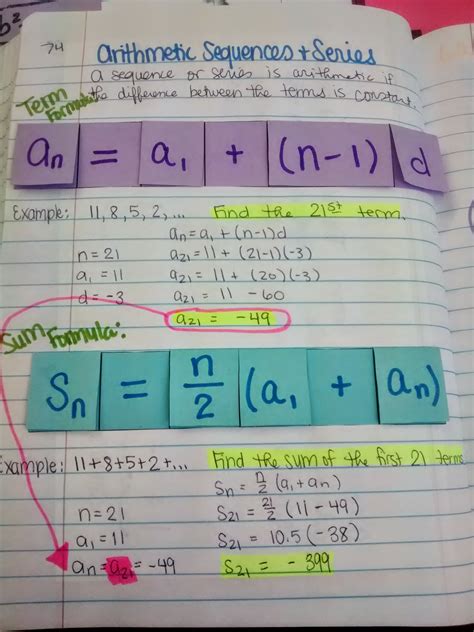 b²
74
Arithmetic Sequences + Series
A sequence or series is arithmetic if
the difference between the terms is constant.
Term
Formula:
aₙ = a₁ + (n-1) d
Example: 11, 8, 5, 2, ... Find the 21st term.
aₙ = a₁ + (n-1)d
n = 21 a₂₁ = 11 + (21-1)(-3)
a₁ = 11 a₂₁ = 11 + (20)(-3)
d = -3 a₂₁ = 11 - 60
a₂₁ = -49
Sum Formula:
Sₙ = n/2 (a₁ + aₙ)
Example: 11+8+5+2+... Find the sum of the first 21 terms
Sₙ = n/2 (a₁ + aₙ)
n = 21 S₂₁ = 21/2 (11 - 49)
a₁ = 11 S₂₁ = 10.5 (-38)
aₙ = a₂₁ = -49 S₂₁ = - 399